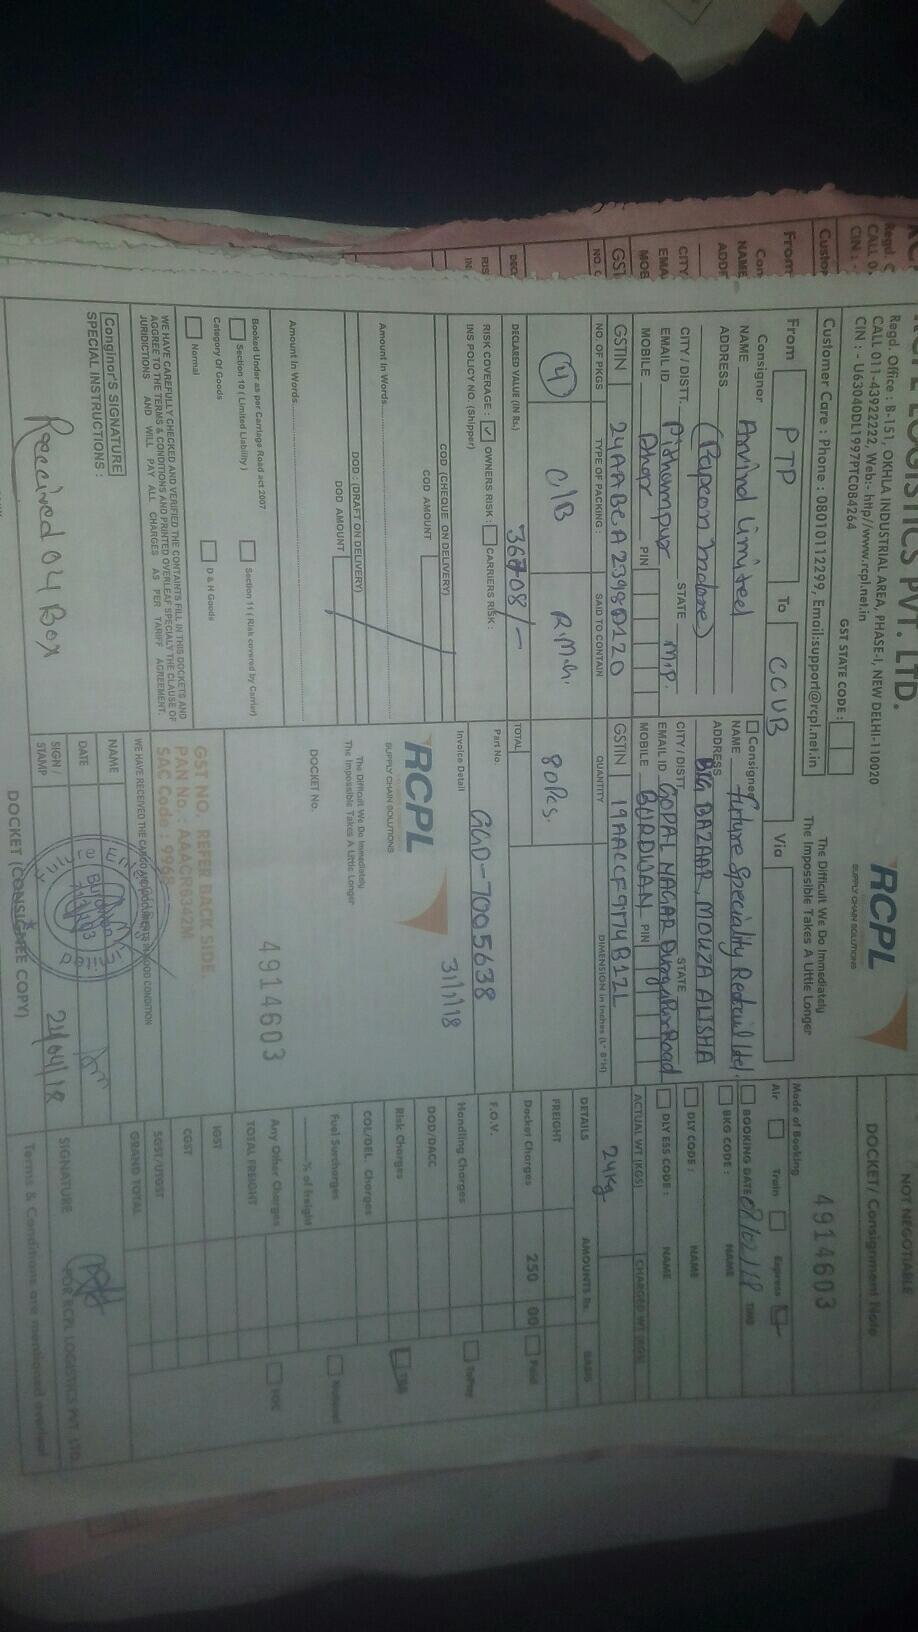 LOGISTICS PVT. LTD.
Regd. Office : B-151, OKHLA INDUSTRIAL AREA, PHASE-I, NEW DELHI-110020
CALL 011-43922222, Web:- http//www.rcpl.net.in
CIN : - U63040DL1997PTC084264
GST STATE CODE :
Customer Care : Phone : 08010112299, Email:support@rcpl.net.in
RCPL
SUPPLY CHAIN SOLUTIONS
The Difficult We Do Immediately
The Impossible Takes A Little Longer
NOT NEGOTIABLE
DOCKET/ Consignment Note
4914603
From PTP To CCUB Via
Mode of Booking
Air Train Express
Consignor
NAME Arvind Limited
ADDRESS
CITY / DISTT. Pithampur STATE M.P.
EMAIL ID
MOBILE Dhar PIN
GSTIN 24AABCA2398D120
Consignee
NAME Future Speciality Retail Ltd.
ADDRESS BIG BAZAAR, MOUZA ALISHA
CITY / DISTT. GOPAL NAGAR Durgapur Road STATE
EMAIL ID
MOBILE BURDWAN PIN
GSTIN 19AACCF9174B1ZL
BOOKING DATE 01/02/18 TIME
BKG CODE : NAME
DLY CODE : NAME
DLY ESS CODE : NAME
ACTUAL WT (KGS) CHARGED WT (KGS)
24kg
NO. OF PKGS TYPE OF PACKING : SAID TO CONTAIN QUANTITY DIMENSION in Inches (L* B*H)
4 C/B 80 Pcs.
DETAILS AMOUNTS Rs. BASIS
FREIGHT
Docket Charges 250 00 Paid
F.O.V.
Handling Charges ToPay
DOD/DACC
Risk Charges TBB
COL/DEL Charges
Fuel Surcharges
% of freight
Any Other Charges FOC
TOTAL FREIGHT
IGST
CGST
SGST/UTGST
GRAND TOTAL
DECLARED VALUE (IN Rs.) 36708/-
TOTAL
RISK COVERAGE : OWNERS RISK : CARRIERS RISK :
INS POLICY NO. (Shipper)
Part No.
Invoice Detail
GGD-7005638
31/1/18
COD (CHEQUE ON DELIVERY)
COD AMOUNT
Amount In Words
DOD : (DRAFT ON DELIVERY)
DOD AMOUNT
Amount In Words
RCPL
SUPPLY CHAIN SOLUTIONS
The Difficult We Do Immediately
The Impossible Takes A Little Longer
DOCKET No.
4914603
Booked Under as per Carriage Road act 2007
Section 10 ( Limited Liability ) Section 11 ( Risk covered by Carrier)
Category Of Goods
Normal D & H Goods
GST NO. REFER BACK SIDE
PAN No. : AAACR8342M
SAC Code : 9968
WE HAVE CAREFULLY CHECKED AND VERIFIED THE CONTAINTS FILL IN THIS DOCKETS AND
AGGREE TO THE TERMS & CONDITIONS AND PRINTED OVERLEAF SPECIALY THE CLAUSE OF
JURIDICTIONS AND WILL PAY ALL CHARGES AS PER TARIFF AGREEMENT.
WE HAVE RECEIVED THE CARGO AND DOCUMENTS IN GOOD CONDITION
Conginor'S SIGNATURE
SPECIAL INSTRUCTIONS :
Received 04 Box
NAME
DATE
SIGN / STAMP
24/04/18
Burdwan
SIGNATURE
FOR RCPL LOGISTICS PVT. LTD.
DOCKET (CONSIGNEE COPY)
Terms & Conditions are mentioned overleaf